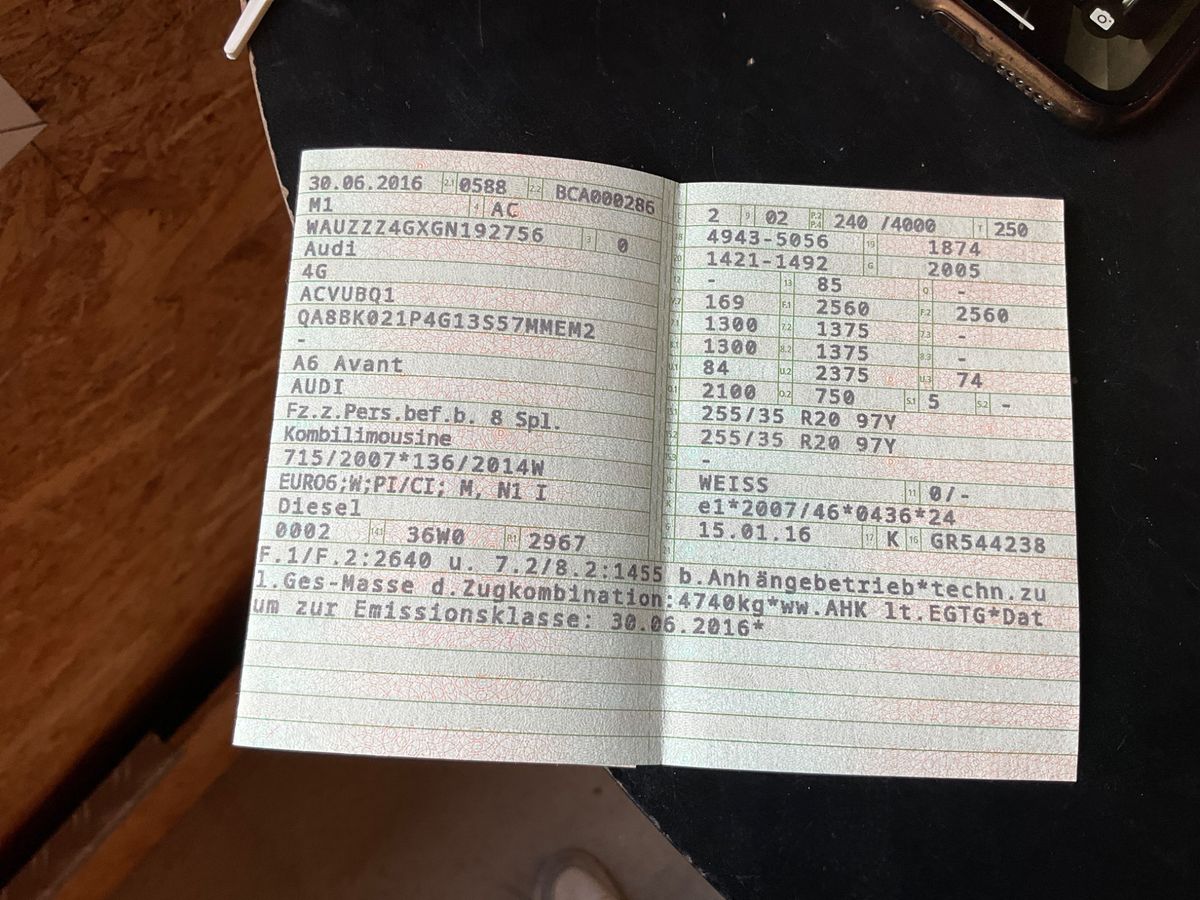 30.06.2016 2.1 0588 2.2 BCA000286
M1 4 AC
WAUZZZ4GXGN192756 3 0
Audi
4G
ACVUBQ1
QA8BK021P4G13S57MMEM2
-
A6 Avant
AUDI
Fz.z.Pers.bef.b. 8 Spl.
Kombilimousine
715/2007*136/2014W
EURO6;W;PI/CI; M, N1 I
Diesel
0002 14.1 36W0 P.1 2967
2 9 02 P.2 P.4 240 /4000 T 250
4943-5056 19 1874
1421-1492 G 2005
- 13 85 Q -
169 F.1 2560 F.2 2560
1300 7.2 1375 7.3 -
1300 8.2 1375 8.3 -
84 U.2 2375 U.3 74
2100 O.2 750 S.1 5 S.2 -
255/35 R20 97Y
255/35 R20 97Y
-
WEISS 11 0/-
e1*2007/46*0436*24
15.01.16 17 K 16 GR544238
F.1/F.2:2640 u. 7.2/8.2:1455 b.Anhängebetrieb*techn.zu
l.Ges-Masse d.Zugkombination:4740kg*ww.AHK lt.EGTG*Dat
um zur Emissionsklasse: 30.06.2016*